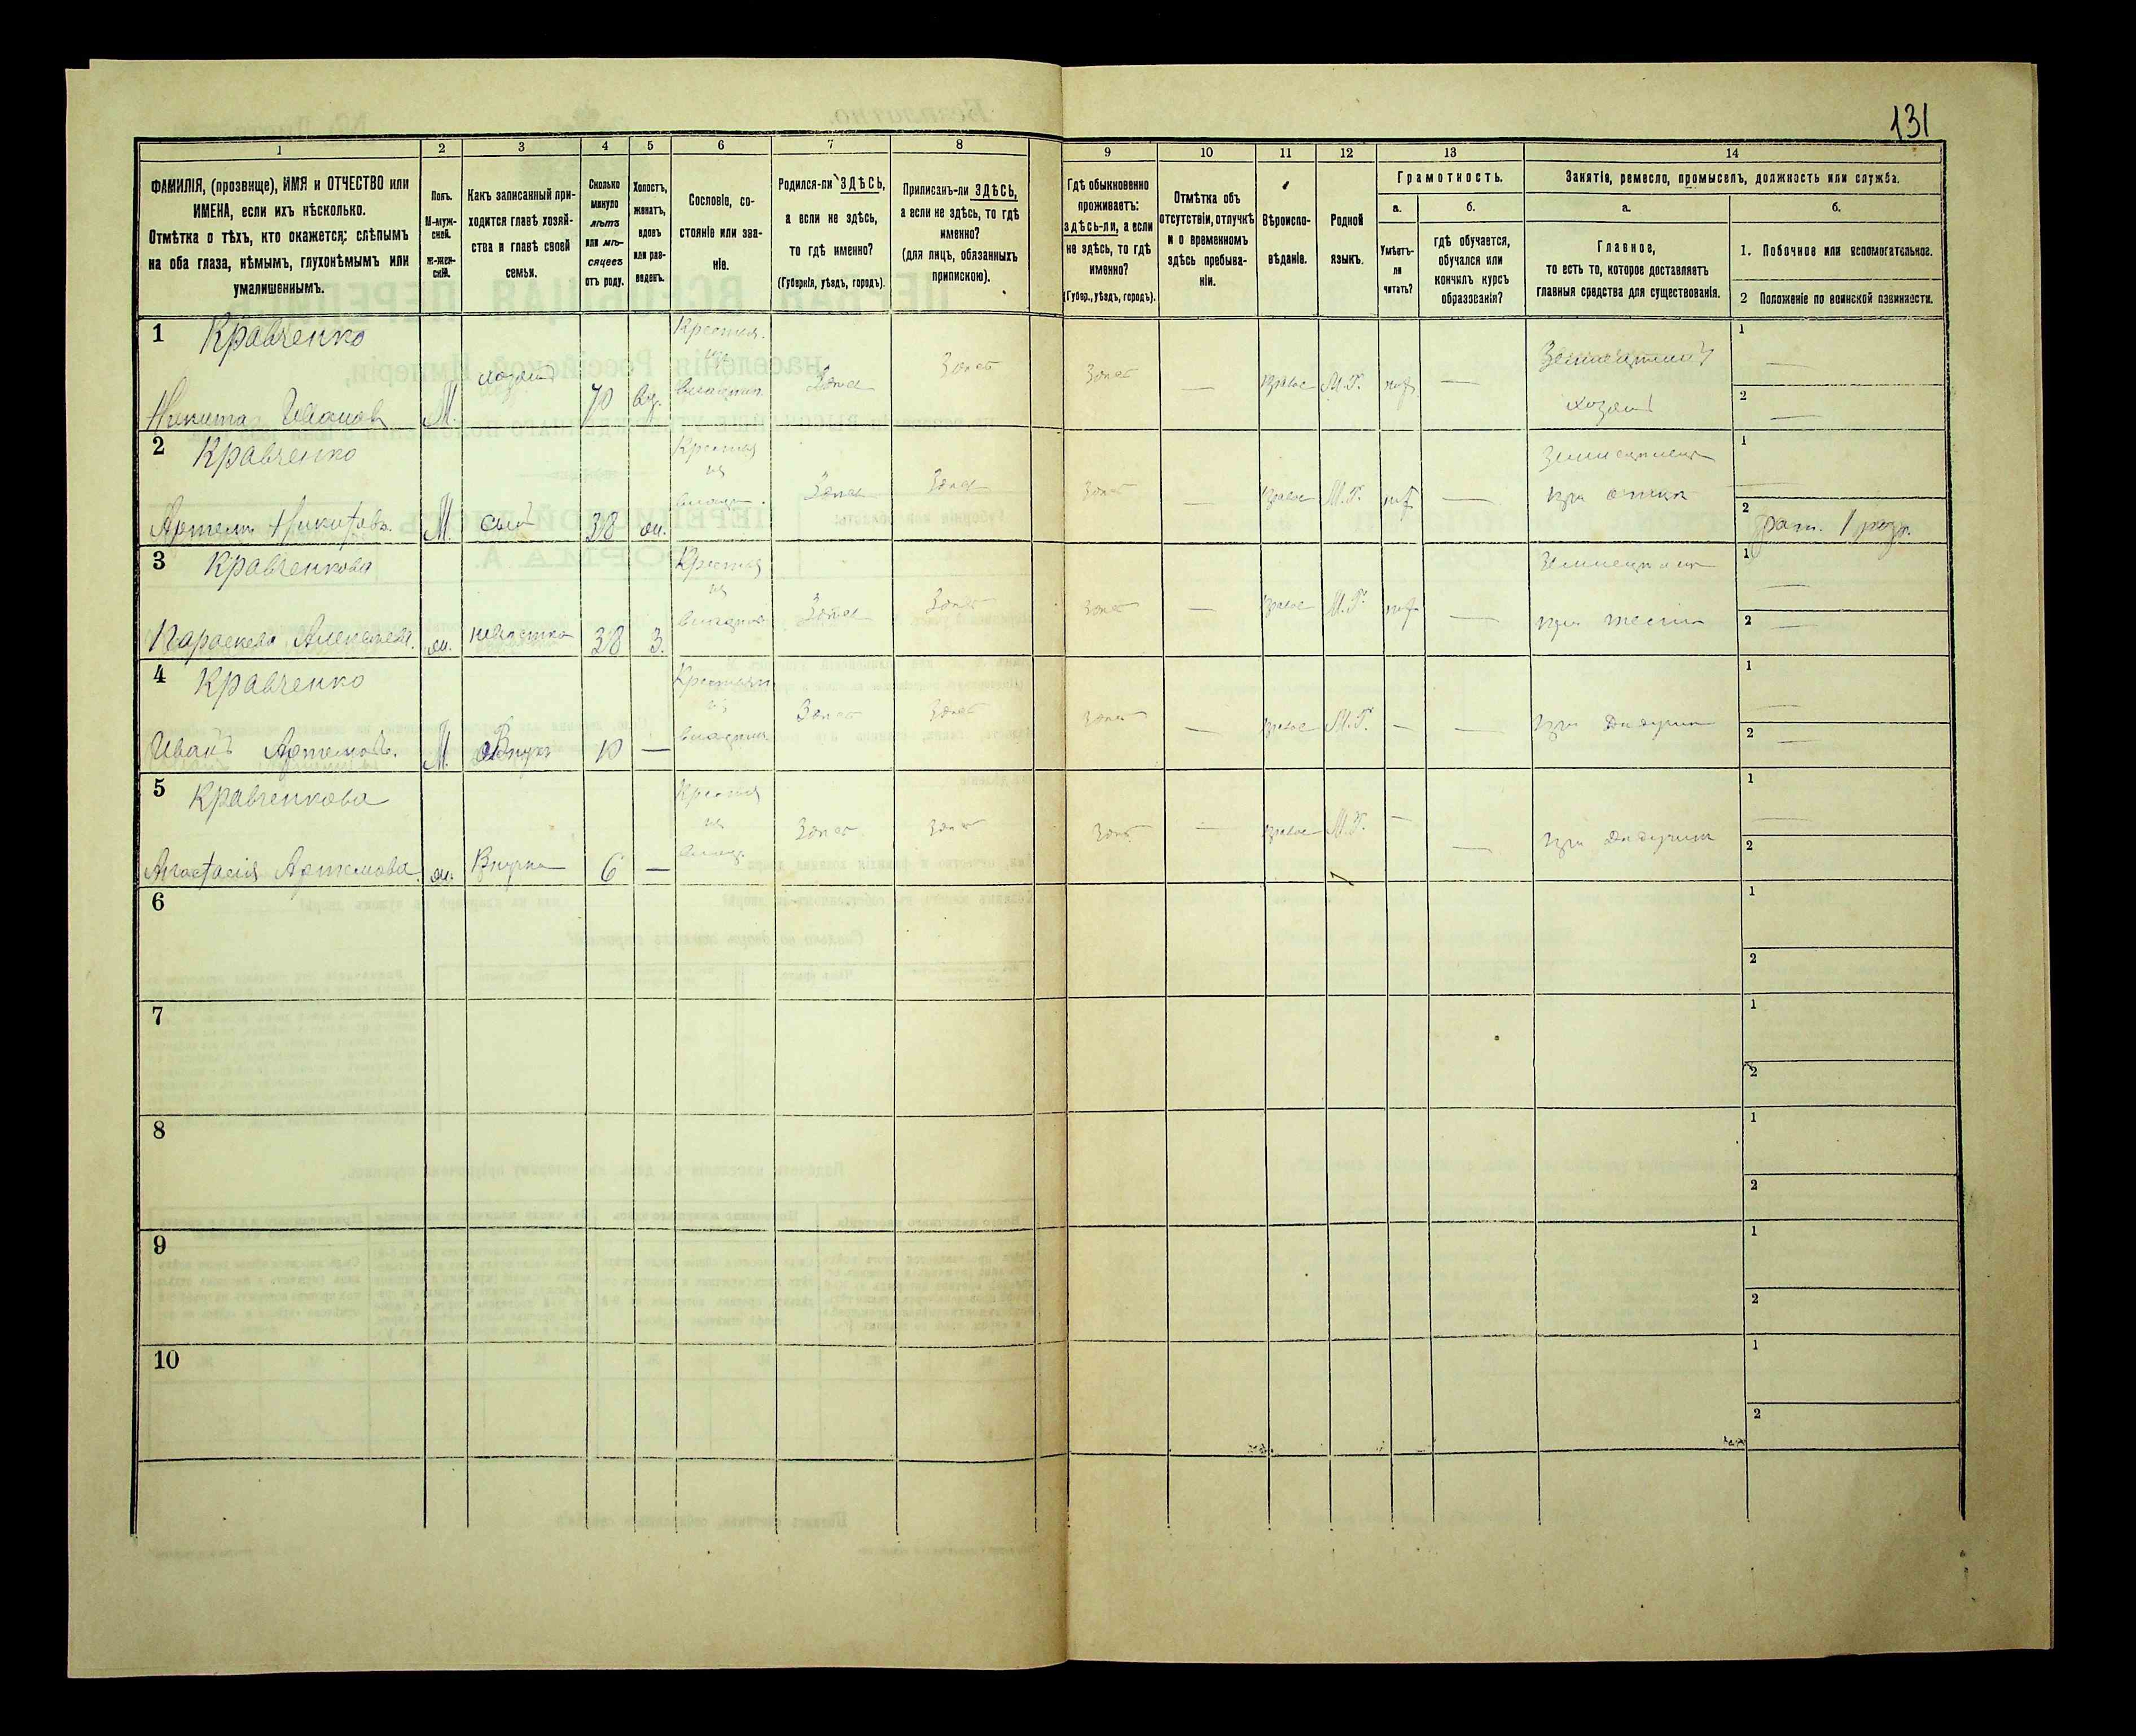 131
1
2
3
4
5
6
7
8
9
10
11
12
13
14
ФАМИЛІЯ, (прозвище), ИМЯ и ОТЧЕСТВО или
ИМЕНА, если ихъ нѣсколько.
Отмѣтка о тѣхъ, кто окажется: слѣпымъ
на оба глаза, нѣмымъ, глухонѣмымъ или
умалишеннымъ.
Полъ.
М-муж-
ской.
Ж-жен-
скій.
Какъ записанный при-
ходится главѣ хозяй-
ства и главѣ своей
семьи.
Сколько
минуло
лѣтъ
или мѣ-
сяцевъ
отъ роду.
Холостъ,
женатъ,
вдовъ
или раз-
веденъ.
Сословіе, со-
стояніе или зва-
ніе.
Родился-ли ЗДѢСЬ,
а если не здѣсь,
то гдѣ именно?
(Губернія, уѣздъ, городъ).
Приписанъ-ли ЗДѢСЬ,
а если не здѣсь, то гдѣ
именно?
(для лицъ, обязанныхъ
припискою).
Гдѣ обыкновенно
проживаетъ:
здѣсь-ли, а если
не здѣсь, то гдѣ
именно?
(Губер., уѣздъ, городъ).
Отмѣтка объ
отсутствіи, отлучкѣ
и о временномъ
здѣсь пребыва-
ніи.
Вѣроиспо-
вѣданіе.
Родной
языкъ.
Грамотность.
а.
Умѣетъ-
ли
читать?
б.
гдѣ обучается,
обучался или
кончилъ курсъ
образованія?
Занятіе, ремесло, промыселъ, должность или служба.
а.
Главное,
то есть то, которое доставляетъ
главныя средства для существованія.
б.
1. Побочное или вспомогательное.
2 Положеніе по воинской повинности.
1 Кравченко
Никита Иванов М. хозяин 70 вд. Здѣсь Здѣсь Здѣсь — М.Р. —
хозяин
1 —
2 —
2 Кравченко
Артем Никитов. М. сын 38 ж. Здѣсь Здѣсь Здѣсь — М.Р. —
при отцѣ
1 —
2 рат. 1 разр.
3 Кравченкова
Параскева Алексѣева. ж. невѣстка 38 З. Здѣсь Здѣсь Здѣсь — М.Р. —
1 —
2 —
4 Кравченко
Иванъ Артемов. М. Внукъ 10 — Здѣсь Здѣсь Здѣсь — М.Р. — —
при дѣдушкѣ
1 —
2 —
5 Кравченкова
Анастасія Артемова. ж. Внучка 6 — Здѣсь Здѣсь Здѣсь — М.Р. — —
при дѣдушкѣ
1 —
2
6
1
2
7
1
2
8
1
2
9
1
2
10
1
2